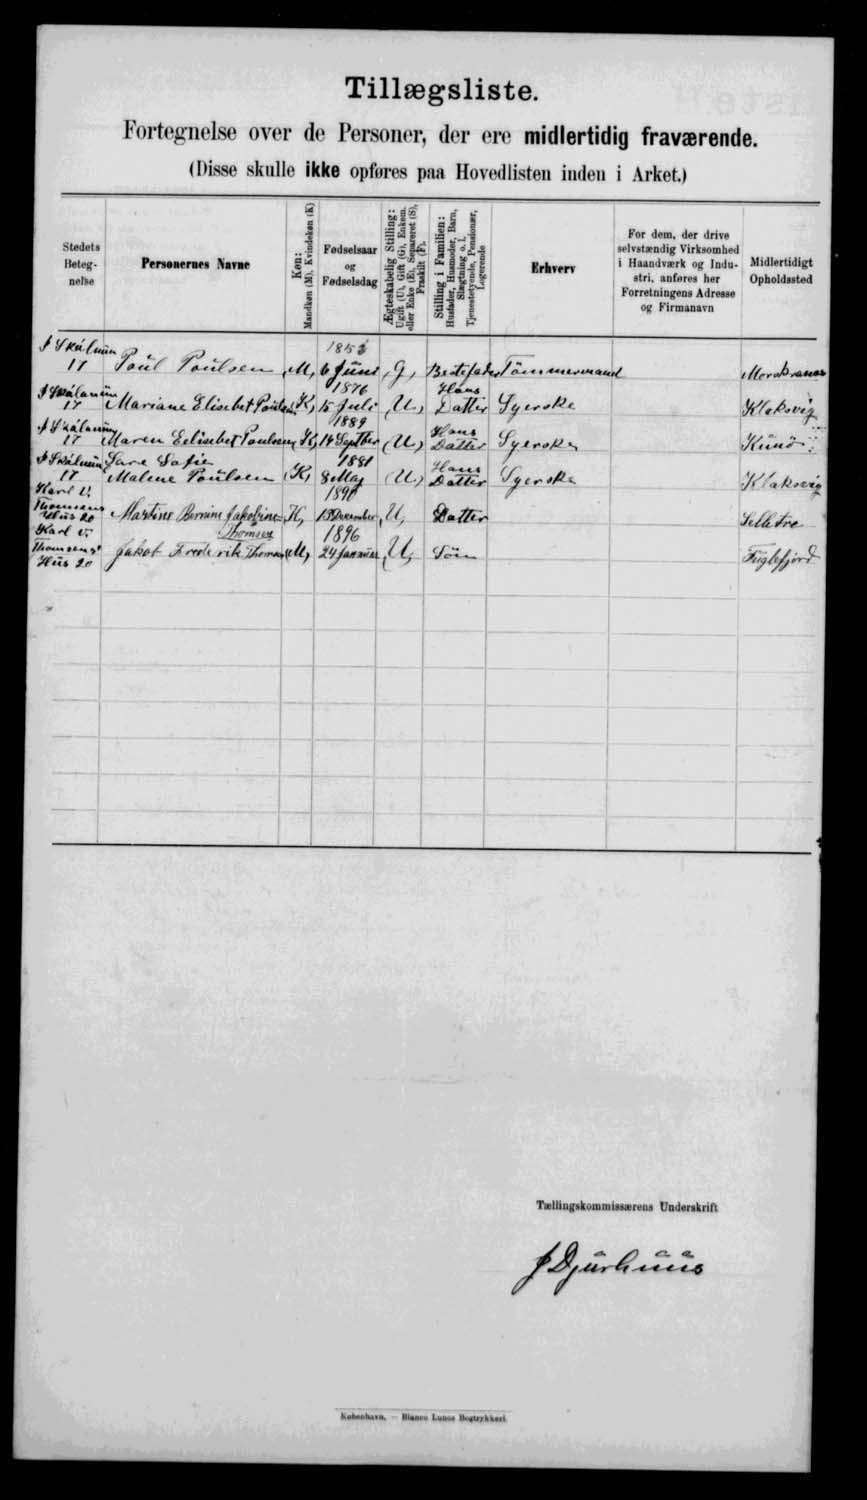 Tillægsliste.
Fortegnelse over de Personer, der ere midlertidig fraværende.
(Disse skulle ikke opføres paa Hovedlisten inden i Arket.)
Stedets
Beteg-
nelse
Personernes Navne
Køn:
Mandkøn (M), Kvindekøn (K)
Fødselsaar
og
Fødselsdag
Ægteskabelig Stilling:
Ugift (U), Gift (G), Enkem.
eller Enke (E), Separeret (S),
Fraskilt (F).
Stilling i Familien:
Husfader, Husmoder, Barn,
Slægtning o. l.
Tjenestetyende, Pensionær,
Logerende
Erhverv
For dem, der drive
selvstændig Virksomhed
i Haandværk og Indu-
stri, anføres her
Forretningens Adresse
og Firmanavn
Midlertidigt
Opholdssted
17 Poul Poulsen M, 6 Juni G, Bestefader Tømmermand
1876 Hans
17 Mariane Elisebet Poulsen K, 15 Juli U, Datter Syerske Klaksvig
1889 Hans
17 Maren Eelisebet Poulsen K, 14 Septber U, Datter Syerske Kunø
Sare Sofie 1881 Hans
17 Malene Poulsen K, 8 Maj U, Datter Syerske Klaksvig
Karl V.
Thomsens Martine Jakobine K, 13 December U, Datter
Hus 20 Thomsen 1896
Karl V.
Thomsens Jakob Frederik Thomsen M, 24 Januar U, Søn Fuglefjord
Hus 20
Tællingskommissærens Underskrift
J Djurhuus
København. — Bianco Lunos Bogtrykkeri.